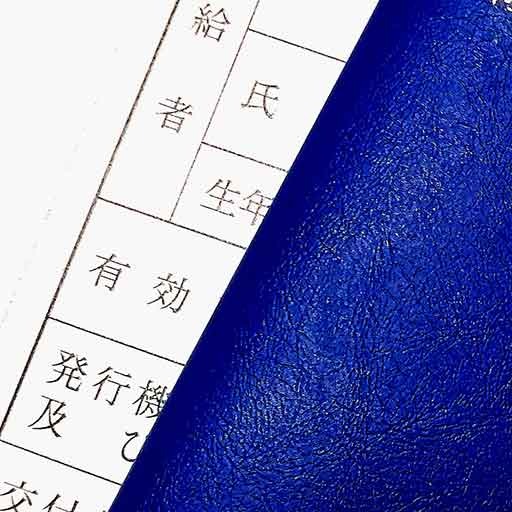 給者
氏
生年
有効
発行機
及び
交付